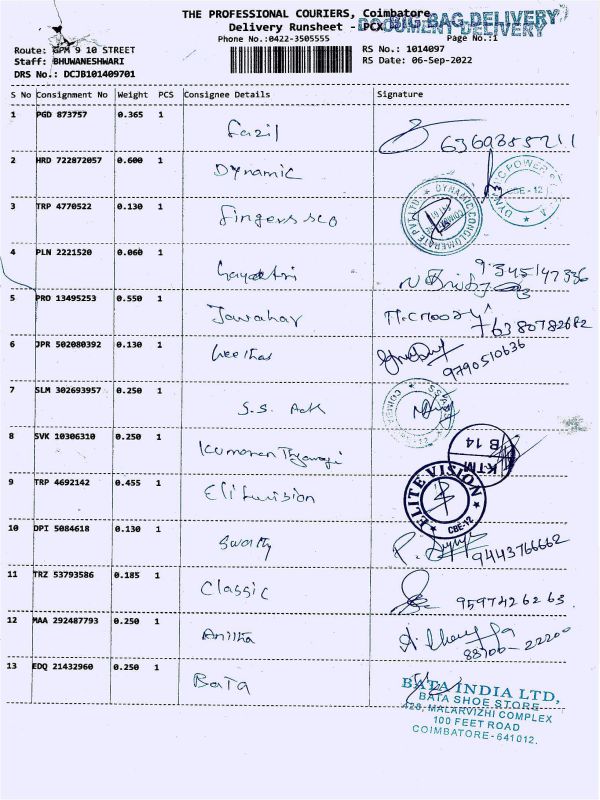 THE PROFESSIONAL COURIERS, Coimbatore
BIG BAG DELIVERY
Delivery Runsheet - PCX
DOCUMENT DELIVERY
Phone No.:0422-3505555
Page No.:1
Route: GPM 9 10 STREET
RS No.: 1014097
Staff: BHUWANESHWARI
RS Date: 06-Sep-2022
DRS No.: DCJB101409701
S No Consignment No Weight PCS Consignee Details Signature
1 PGD 873757 0.365 1 Fazil 6369855211
2 HRD 722872057 0.600 1 Dynamic
DYNAMIC POWER CBE-12
3 TRP 4770522 0.130 1 Fingers
DYNAMIC CONGLOMERATE PVT. LTD
4 PLN 2221520 0.060 1 Gayathri 9345147336
5 PRO 13495253 0.550 1 Jawahar 76380782682
6 JPR 502080392 0.130 1 Geetha 9790510636
7 SLM 302693957 0.250 1 S.S. Ack
8 SVK 10306310 0.250 1 Kumaran
KTM
B 14
9 TRP 4692142 0.455 1 Elitevision
ELITE VISION
CBE-12
10 DPI 5084618 0.130 1 Swathy 9443766662
11 TRZ 53793586 0.185 1 Classic 9597426263
12 MAA 292487793 0.250 1 Anitha 88706-22200
13 EDQ 21432960 0.250 1 Bata
BATA INDIA LTD,
BATA SHOE STORE
428, MALARVIZHI COMPLEX
100 FEET ROAD
COIMBATORE-641012.